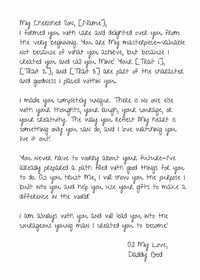 My Cherished Son, [Name],
I formed you with care and delighted over you from
the very beginning. You are My masterpiece—valuable
not because of what you achieve, but because I
created you and call you Mine! Your [Trait 1],
[Trait 2], and [Trait 3] are part of the character
and goodness I placed within you.
I made you completely unique. There is no one else
with your thoughts, your laugh, your courage, or
your creativity. The way you reflect My heart is
something only you can do, and I love watching you
live it out!
You never have to worry about your future—I've
already prepared a path filled with good things for you
to do. As you trust Me, I will show you the purpose I
built into you and help you use your gifts to make a
difference in the world!
I am always with you and will lead you into the
courageous young man I created you to become!
All My Love,
Daddy God